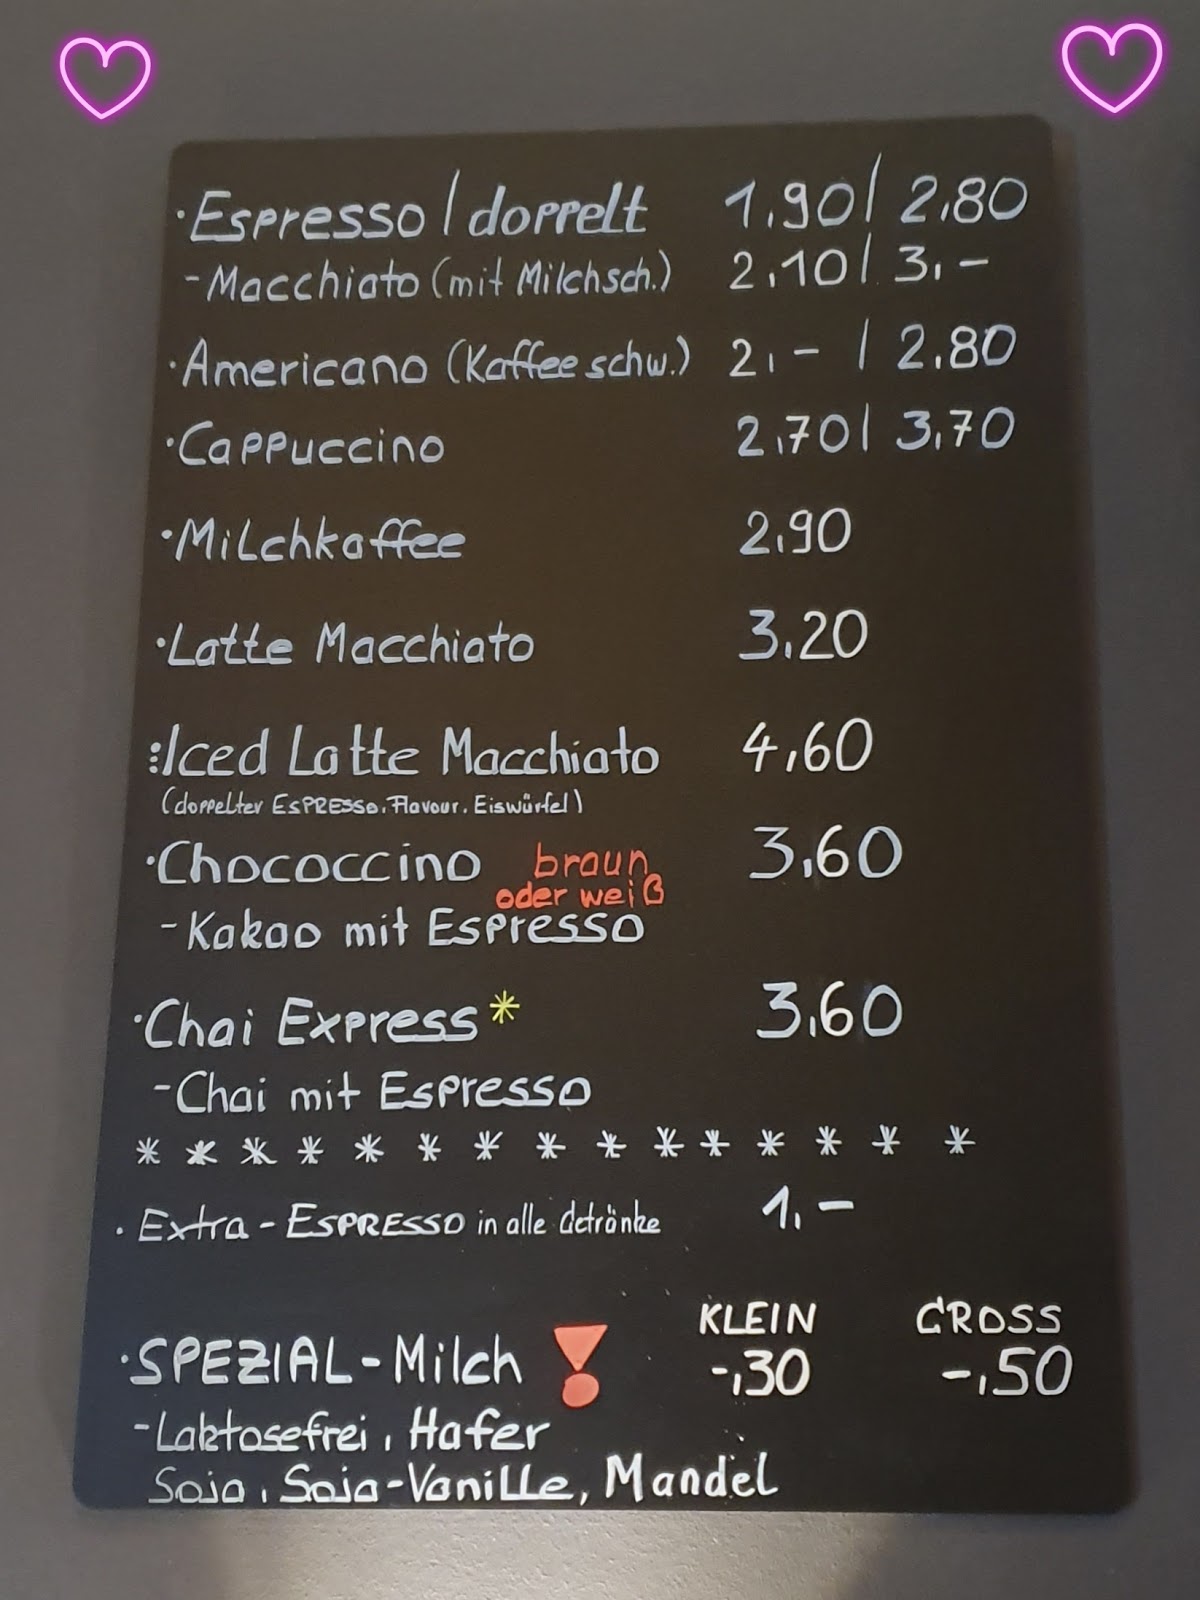 ·Espresso / doppelt 1,90 / 2,80
- Macchiato (mit Milchsch.) 2,10 / 3,-
·Americano (Kaffee schw.) 2,- / 2,80
·Cappuccino 2,70 / 3,70
·Milchkaffee 2,90
·Latte Macchiato 3,20
:Iced Latte Macchiato 4,60
(doppelter ESPRESSO, Flavour, Eiswürfel)
·Chococcino braun 3,60
oder weiß
- Kakao mit Espresso
·Chai Express* 3,60
- Chai mit Espresso
* * * * * * * * * * * * * * *
· Extra - ESPRESSO in alle Getränke 1,-
KLEIN GROSS
·SPEZIAL - Milch ! -,30 -,50
- Laktosefrei, Hafer
Soja, Soja-Vanille, Mandel